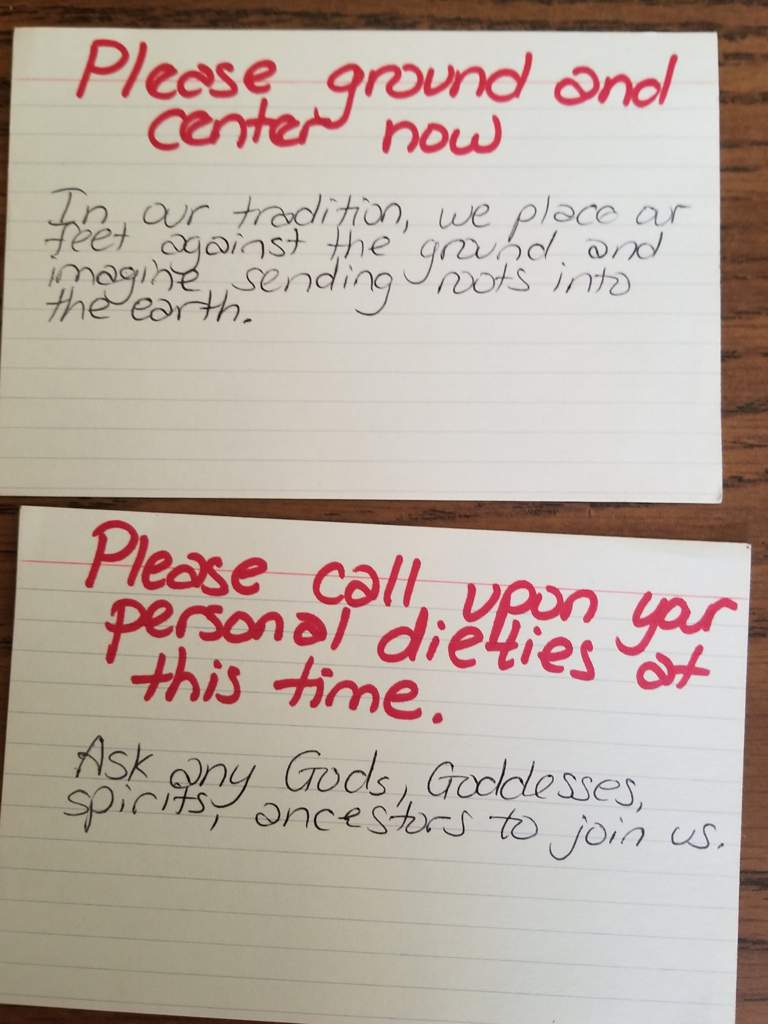 Please ground and
center now
In our tradition, we place our
feet against the ground and
imagine sending roots into
the earth.
Please call upon your
personal dieties at
this time.
Ask any Gods, Goddesses,
spirits, ancestors to join us.